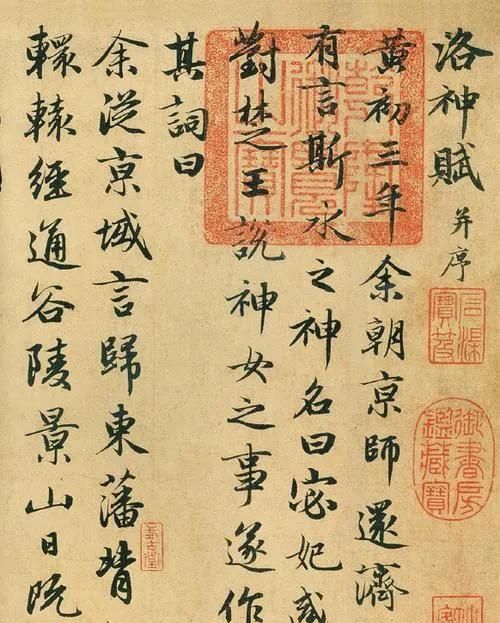 洛神賦 并序
黃初三年余朝京師還濟
有言斯水之神名曰宓妃感
對楚王說神女之事遂作
其詞曰
余從京域言歸東藩背
轘轅經通谷陵景山日既
石渠寶笈
御書房鑑藏寶